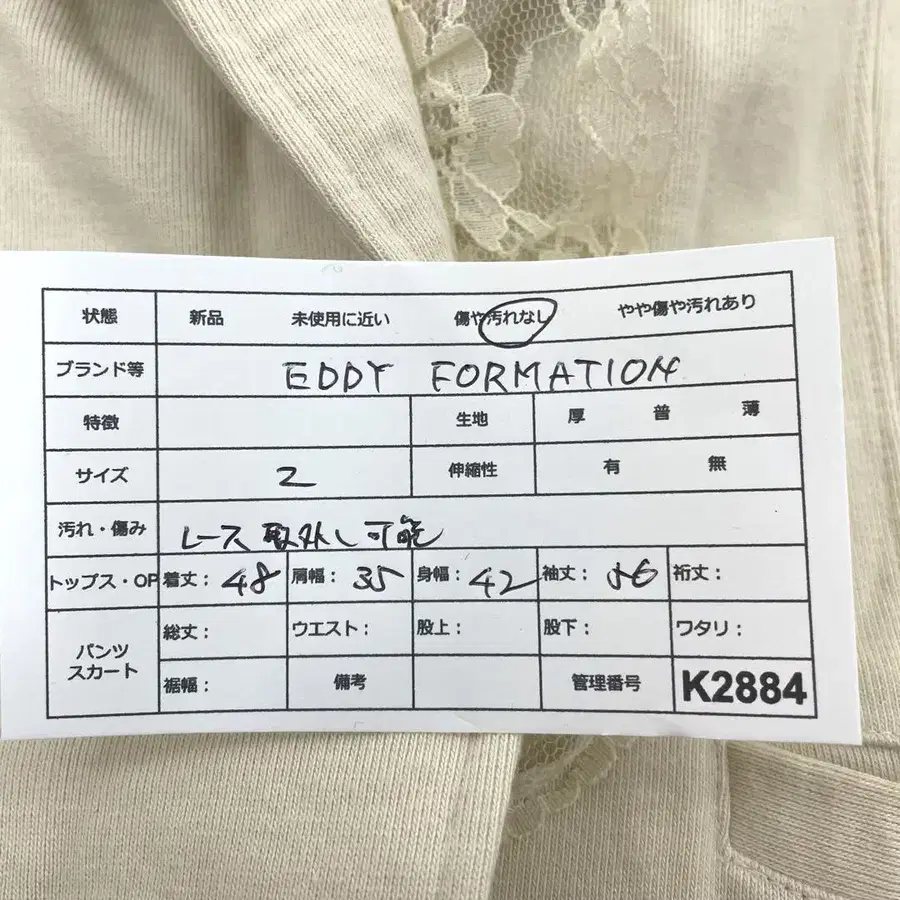 状態 新品 未使用に近い 傷や汚れなし やや傷や汚れあり
ブランド等 EDDY FORMATION
特徴 生地 厚 普 薄
サイズ 2 伸縮性 有 無
汚れ・傷み レース取外し可能
トップス・OP 着丈: 48 肩幅: 35 身幅: 42 袖丈: 56 裄丈:
パンツ スカート 総丈: ウエスト: 股上: 股下: ワタリ:
裾幅: 備考 管理番号 K2884